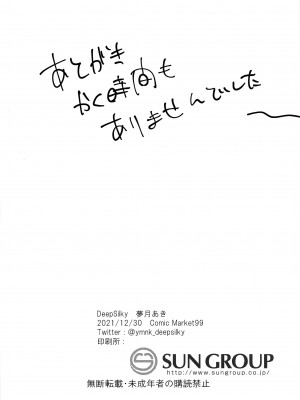 あとがき
かく時間も
ありませんでした
DeepSilky 夢月あき
2021/12/30 Comic Market99
Twitter : @ymnk_deepsilky
印刷所 :
SUN GROUP
http://www.sungroup.co.jp/
無断転載・未成年者の購読禁止